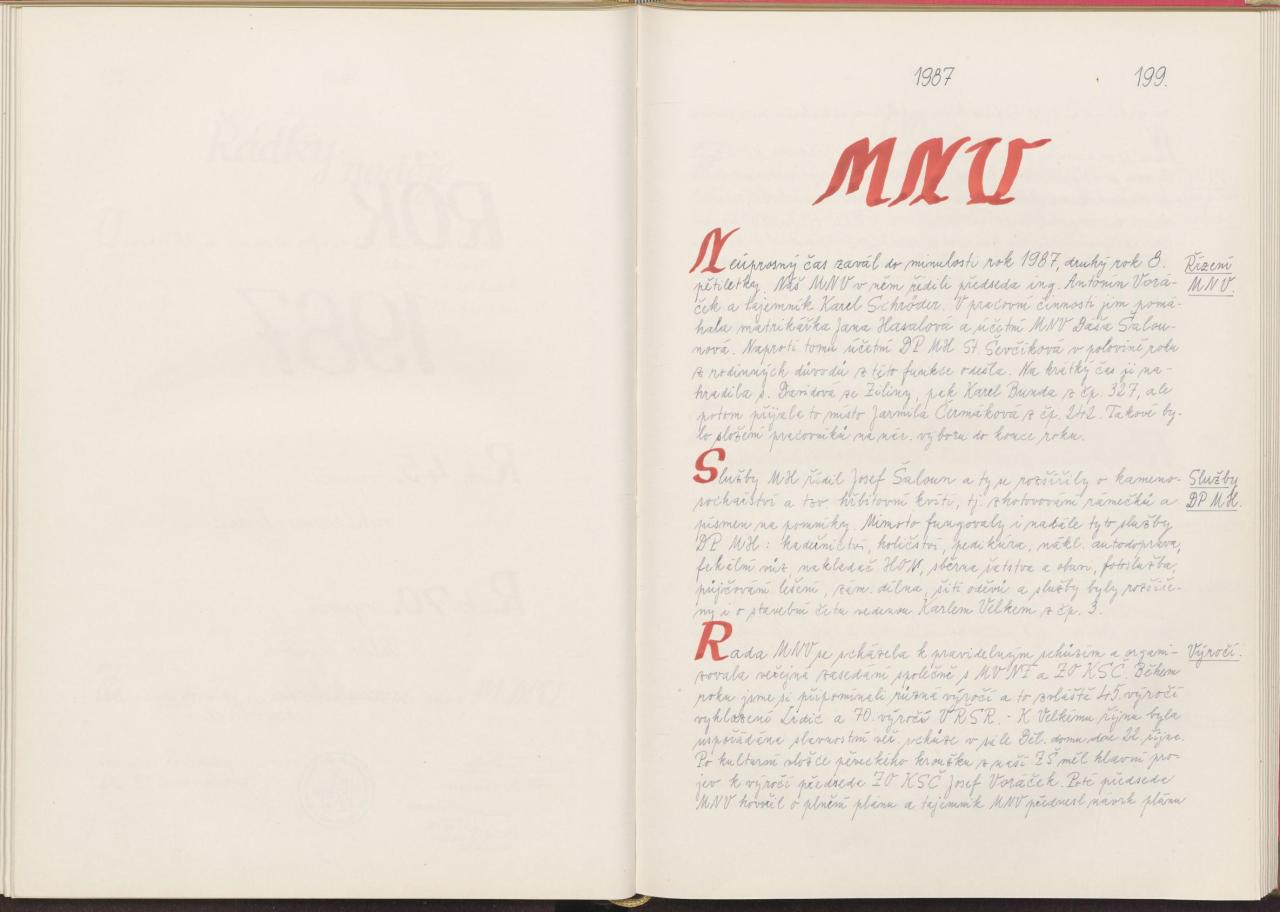 1987 199.
MNV
Neúprosný čas zavál do minulosti rok 1987, druhý rok 8. Řízení
pětiletky. Náš MNV v něm řídili předseda ing. Antonín Vorá- MNV.
ček a tajemník Karel Schröder. V pracovní činnosti jim pomá-
hala matrikářka Jana Hasalová a účetní MNV Dáša Šalou-
nová. Naproti tomu účetní DP MH St. Ševčíková v polovině roku
z rodinných důvodů z této funkce odešla. Na krátký čas ji na-
hradila s. Davidová ze Žiliny, pak Karel Bunda z čp. 327, ale
potom přijala to místo Jarmila Čermáková z čp. 242. Takové by-
lo složení pracovníků na nár. výboru do konce roku.
Služby MH řídil Josef Šaloun a ty se rozšířily o kameno- Služby
sochařství a tzv. hřbitovní kvítí, tj. zhotovování rámečků a DP MH.
písmen na pomníky. Mimoto fungovaly i nadále tyto služby
DP MH: kadeřnictví, holičství, pedikúra, nákl. autodoprava,
fekální vůz, nakladač HON, sběrna šatstva a obuvi, fotoslužba,
půjčování lešení, zám. dílna, šití oděvů a služby byly rozšíře-
ny i o stavební četu vedenou Karlem Velkem z čp. 3.
Rada MNV se scházela k pravidelným schůzím a organi- Výročí.
zovala veřejná zasedání společně s MV NF a ZO KSČ. Během
roku jsme si připomínali různá výročí a to zvláště 45. výročí
vyhlazení Lidic a 70. výročí VŘSR. - K Velkému říjnu byla
uspořádána slavnostní veř. schůze v sále Děl. domu dne 22. října.
Po kulturní vložce pěveckého kroužku z naší ZŠ měl hlavní pro-
jev k výročí předseda ZO KSČ Josef Voráček. Poté předseda
MNV hovořil o plnění plánu a tajemník MNV přednesl návrh plánu